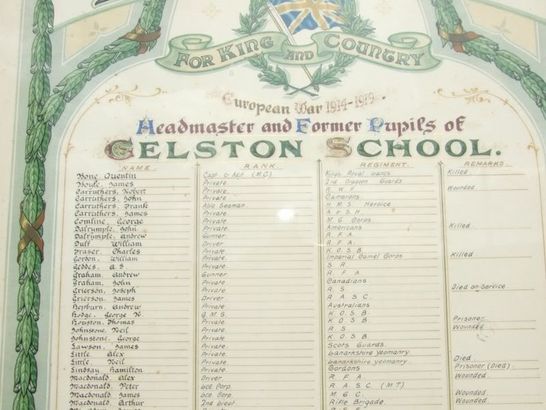 FOR KING AND COUNTRY
European War 1914-1919
Headmaster and Former Pupils of
GELSTON SCHOOL.
NAME. RANK. REGIMENT. REMARKS.
Bone Quentin Capt & Adj. (M.C.) Kings Royal Killed
Boyle James Private. 2nd Dragoon Guards
Carruthers, Robert Private. R. W. F. Wounded
Carruthers, John Private. Camerons
Carruthers, Frank Able Seaman H.M.S.
Carruthers, James Private. A & S H
Comline, George Private. M G Corps
Dalrymple, John Private. Americans Killed
Dalrymple, Andrew Gunner R F A
Duff William Driver R. F. A.
Fraser Charles Private. K. O. S. B.
Gordon, William Private. Imperial Camel Corps Killed
Geddes, A S Private. S R
Graham, Andrew Gunner R F A
Graham, John Private. Canadians
Grierson, Joseph Private. R S Died on Service
Grierson, James Driver R A S C.
Hepburn, Andrew Private. Australians
Hodge, George N. Q.M.S. K O S B Prisoner
Houston, Thomas Private. K O S B Wounded
Johnstone, Neil Private. R S
Johnstone, George Private. K O S B
Lawson, James Private. Scots Guards.
Little Alex Private. Lanarkshire Yeomanry Died
Little Neil Private. Lanarkshire Yeomanry Prisoner (Died)
Lindsay Hamilton Private. Gordons Wounded
Macdonald Alex Driver R F A
Macdonald Peter Lce Corp. R A S C (M T) Wounded
Macdonald James Lce Corp. M G C. Wounded
Macdonald Arthur 2nd Lieut Rifle Brigade Wounded